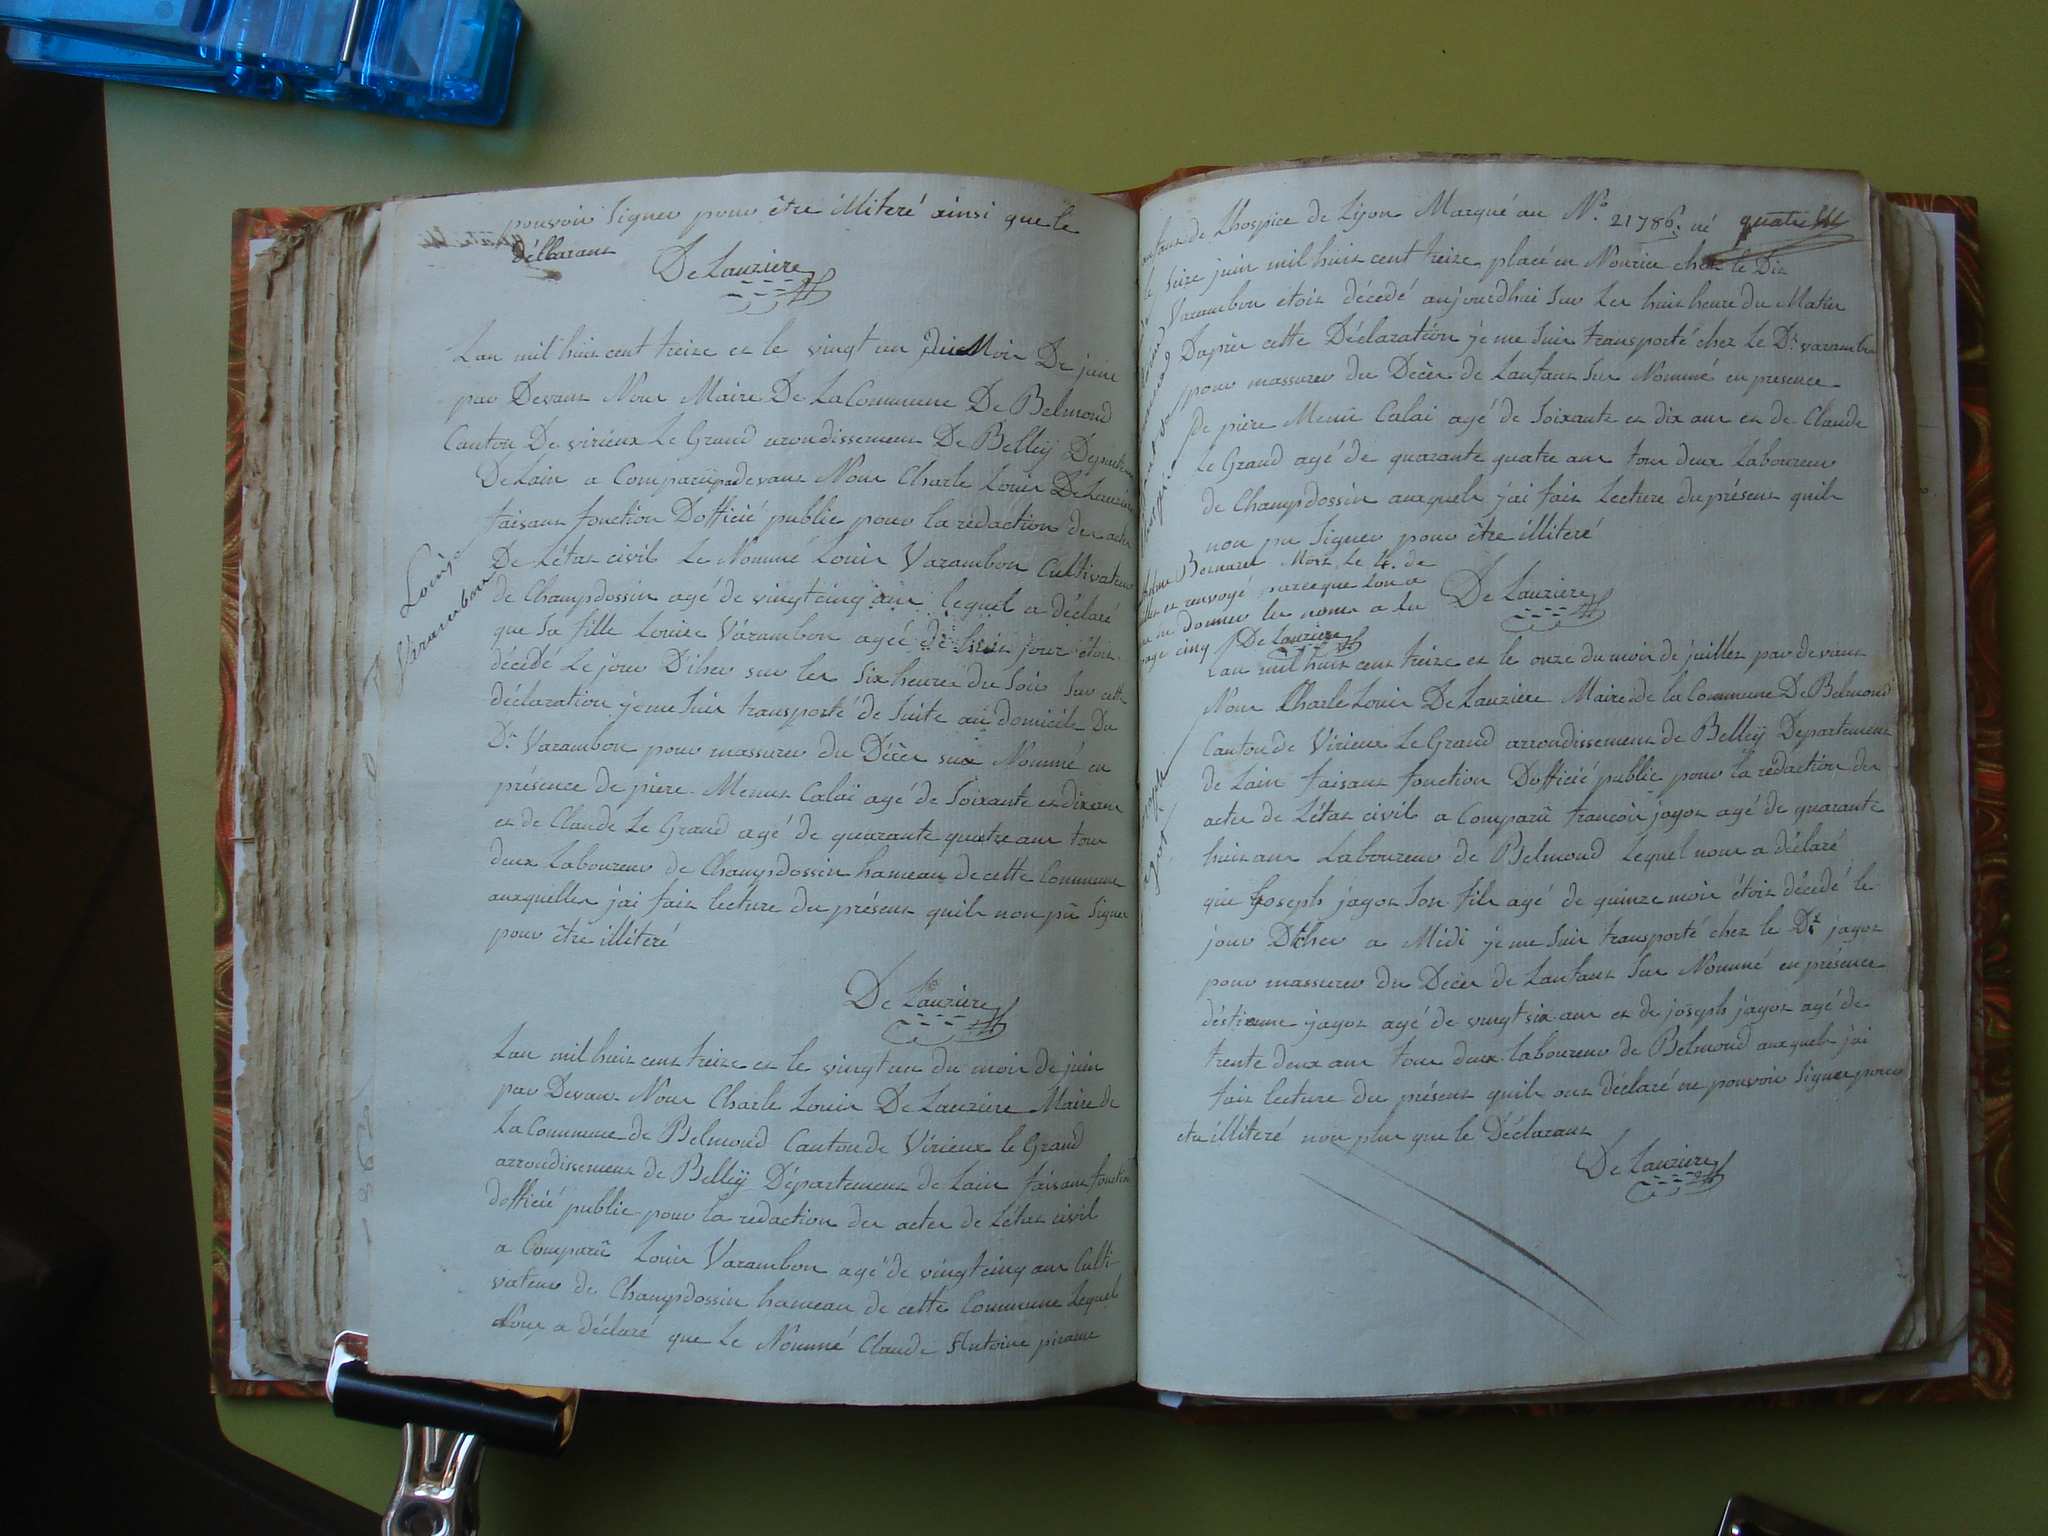 pouvoir Signer pour être illiteré ainsi que le
déllarant
De Lauziere
Lan mil huit cent treize et le vingt un du Moir De juin
par Devant Nour Maire De La Commune De Belmond
Canton De virieux Le Grand arondissement De Belleÿ Departem
De Lain a Comparü padevant Nour Charle Louir De Lauziere
faisant fonction Dofficié public pour la redaction der acter
De Létat civil Le Nommé Louir Varambon Cultivateur
de Champdossin agé de vingt cinq anr lequel a déclaré
que Sa fille Louise Varambon agée de huit jour étoit
décédé Le jour D'iher sur ler Six heurer du Soir Sur cette
déclaration je me Suir transporté de Suite au domicile Du
Dt. Varambon pour massurer du Décèr sus Nommé en
présence de piere Menut Calaï agé de Soixante et dix anr
et de Claude Le Grand agé de quarante quatre anr tour
deux Laboureur de Champdossin hameau de cette Commune
auxqueller jai fait lecture du présent quilr non pü Signer
pour être illiteré
De Lauziere
Louise
Varambon
Lan mil huit cent treize et le vingt un du moir de juin
par Devant Nour Charle Louir De Lauziere Maire de
La Commune de Belmond Canton de Virieux le Grand
arrondissement de Belleÿ Département de Lain faisant fonction
dofficié public pour la redaction der acter de Létat civil
a Comparü Louir Varambon agé de vingt cinq anr Culti-
vateur de Champdossin hameau de cette Commune Lequel
Nour a déclaré que Le Nommé Claude Antoine
quatre
enfant de Lhospice de Lyon Marqué au No. 21786. né
le seize juin mil huit cent treize placé en Nourice chez le Dit
Varambon étoit décedé aujourdhui Sur Ler huit heure du Matin
Daprèr cette Déclaration je me Suir transporté chez Le Dt. varambon
pour massurer du Décèr de Lanfant Sur Nommé en presence
de piere Menü Calai agé de Soixante et dix anr et de Claude
Le Grand agé de quarante quatre anr tour deux Laboureur
de Champdossin auxquelr jai fait Lecture du présent quilr
non pu Signer pour être illiteré
De Lauziere
Bernard Mort Le 4. de
et renvoyé parceque lon a
donner ler noms a La
page cinq De Lauziere
Lan mil huit cent treize et le onze du moir de juillet par devant
Nour Charle Louir De Lauziere Maire de la Commune De Belmond
Canton de Virieux Le Grand arrondissement de Belleÿ Departement
de Lain faisant fonction Dofficié public pour la rédaction der
acter de Létat civil a Comparü françoir jagot agé de quarante
huit anr Laboureur de Belmond Lequel nour a déclaré
que joseph jagot Son fils agé de quinze moir étoit décédé le
jour D'iher a Midi je me Suir transporté chez le Dt. jagot
pour massurer du Decèr de Lanfant Sur Nommé en présence
déstienne jagot agé de vingt six anr et de joseph jagot agé de
trente deux anr tour deux laboureur de Belmond auxquelr jai
fait lecture du présent quilr ont déclaré ne pouvoir Signer pour
etre illiteré non plur que le Déclarant
De Lauziere